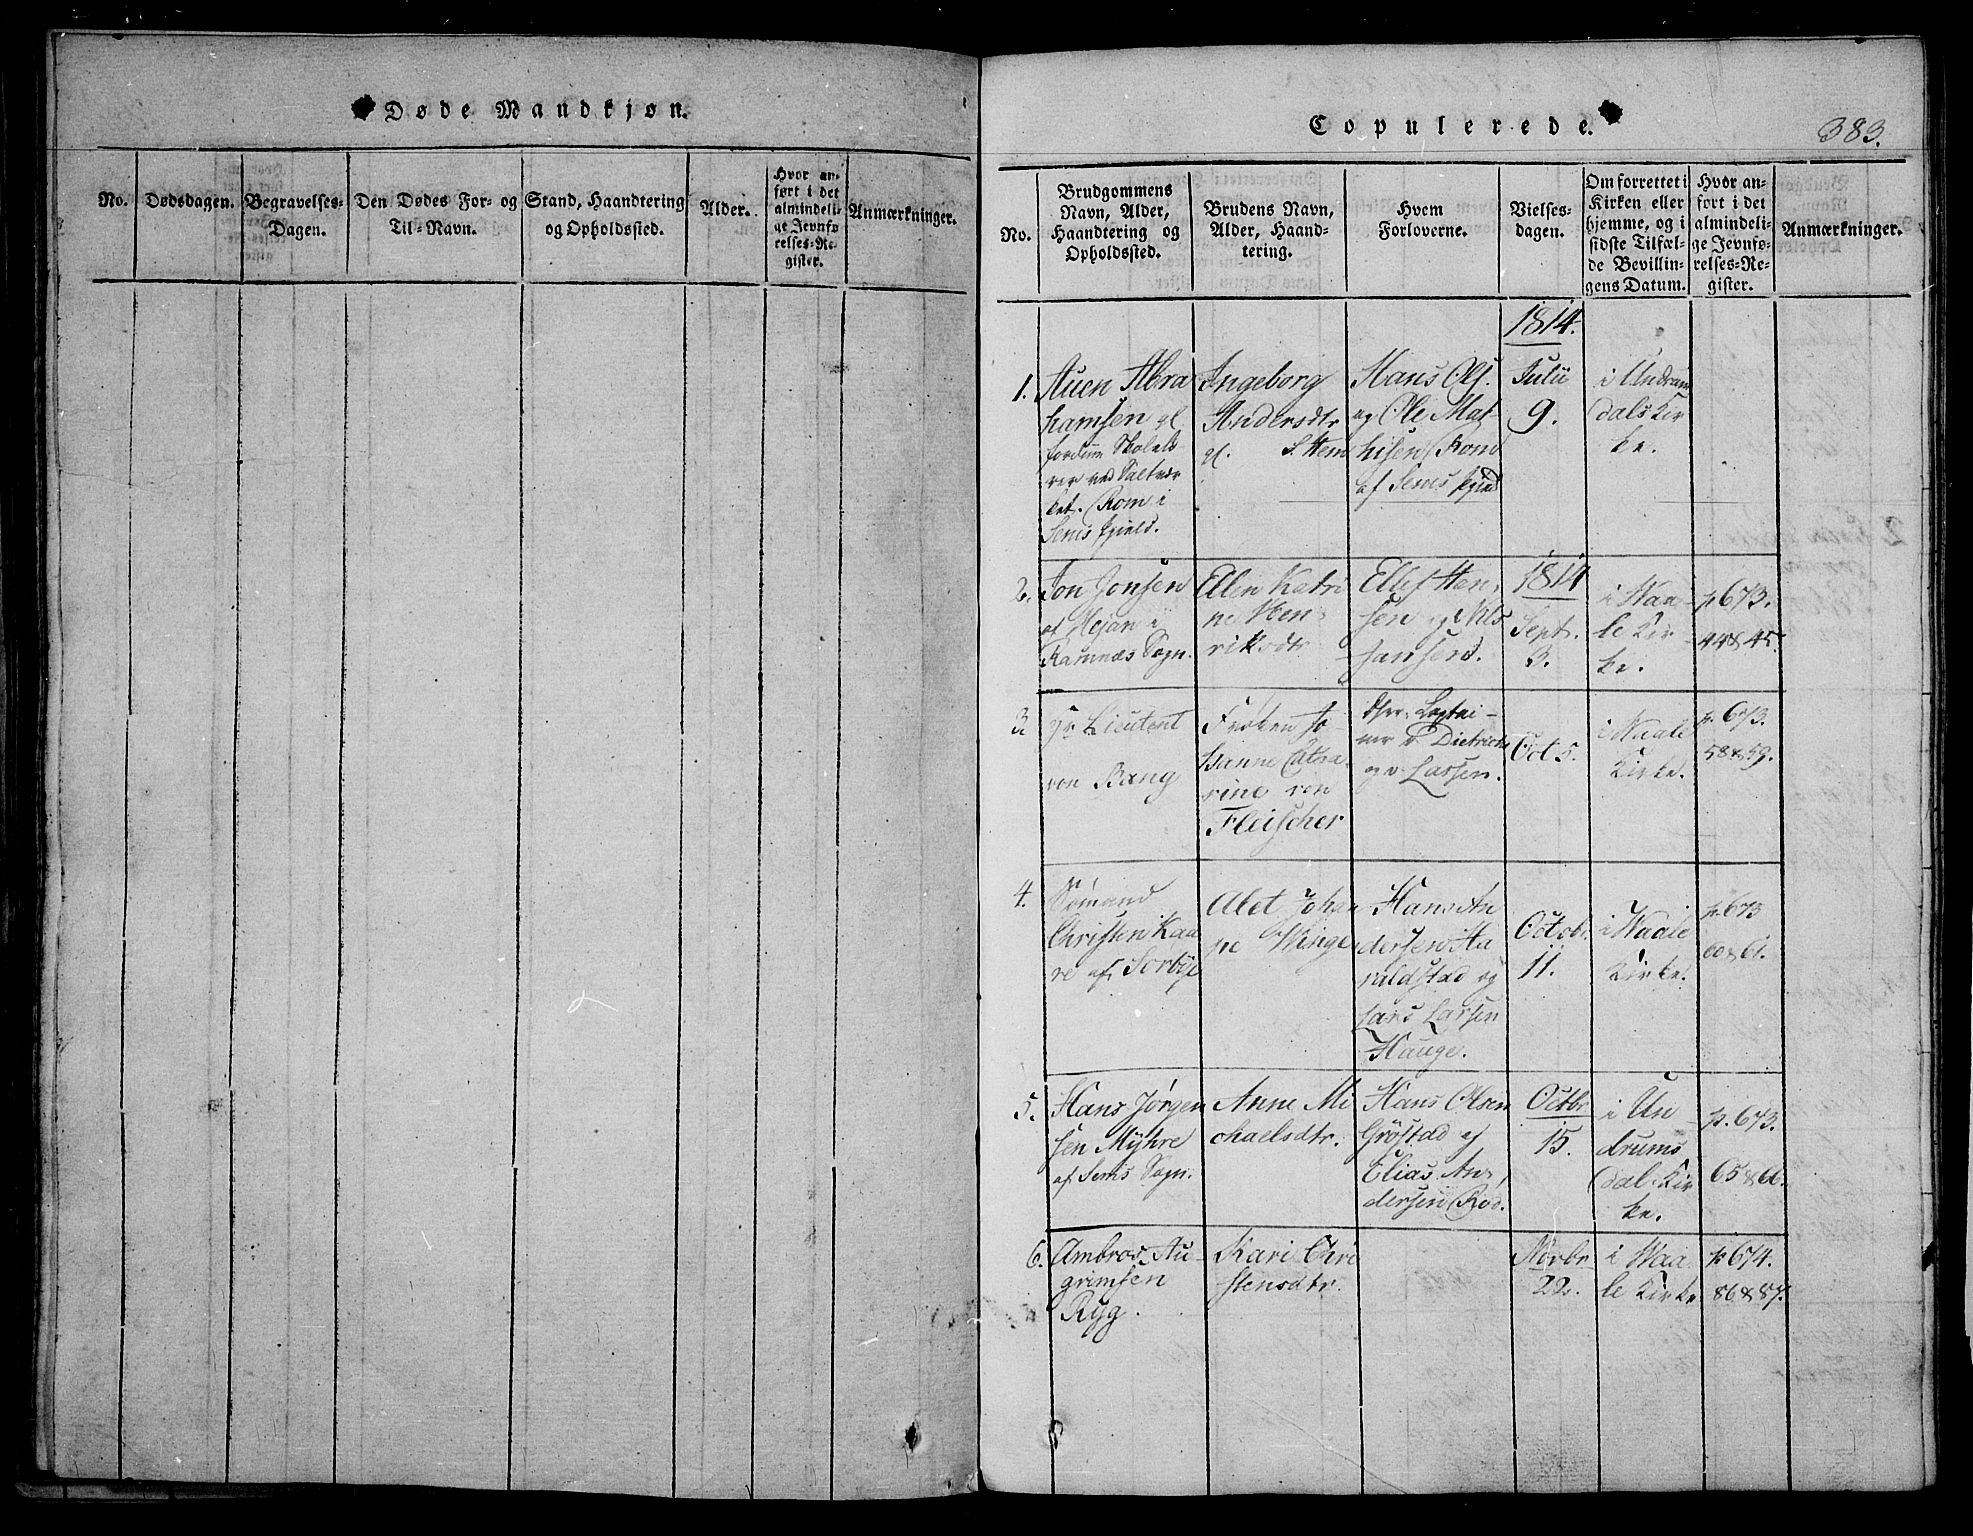 Døde Mandkjøn.
No.
Dødsdagen.
Begravelses-
Dagen.
Den Dødes For- og
Til-Navn.
Stand, Haandtering
og Opholdssted.
Alder.
Hvor an-
ført i det
almindeli-
ge Jevnfø-
relses-Re-
gister.
Anmærkninger.
Copulerede.
383.
No.
Brudgommens
Navn, Alder,
Haandtering og
Opholdssted.
Brudens Navn,
Alder, Haand-
tering.
Hvem
Forloverne.
Vielses-
dagen.
Om forrettet i
Kirken eller
hjemme, og i
sidste Tilfæl-
de Bevillin-
gens Datum.
Hvor an-
ført i det
almindeli-
ge Jevnfø-
relses-Re-
gister.
Anmærkninger.
1.
Auen Abra
hamsen gl
fordum Skolelæ
rer ved Saltvær
ket. Rom i
Sems fjield.
Ingeborg
Andersdtr
gl. S. Hem
Hans Ols.
og Ole Mat
hisen Rom
af Sems fjeld
1814.
Julii
9.
i Undrum
dals Kir
ke.
2.
Jon Jonsen
af Mejan i
Ramnæs Sogn.
Ellen Katri
ne Hen
riksdtr
Ellef Hen
sen og Nils
Hansens.
1814
Septr.
3.
i Waa
le Kir
ke.
p 673.
44&45.
3.
Hr Lieutent
von Bang
Frøken Jo
hanne Catha
rine von
Fleischer
Dhrr. Captai-
ner v. Dietrichs
og v. Lassen.
Oct 5.
i Waale
Kirke.
p. 673.
58&59.
4.
Sømand
Christen Kaa
re af Sørbye
Alet Johan
ne Winge
Hans An
dersen Ha
raldstad og
Lars Larsen
Hauge.
Octobr
11.
i Waale
Kirke.
p. 673
60&61.
5.
Hans Jørgen
sen Myhre
af Sems Sogn.
Anne Mi
chaelsdtr.
Hans Olsen
Grøstad og
Elias An
dersen Rød.
Octbr
15.
i Un
drums
dal Kir
ke.
p. 673.
65&66.
6.
Ambros Au-
grimsen
Ryg.
Kari Chri
stensdtr.
Novbr
22.
i Waa
le Kirke
p 674.
86&87.